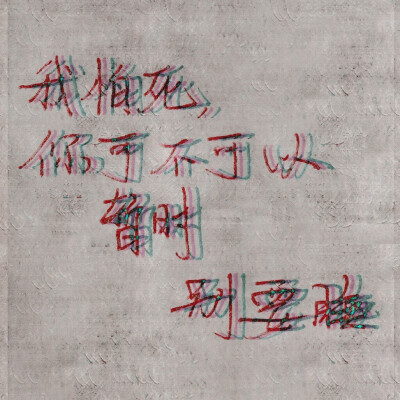 我怕死，
你可不可以
暂时
别要睡